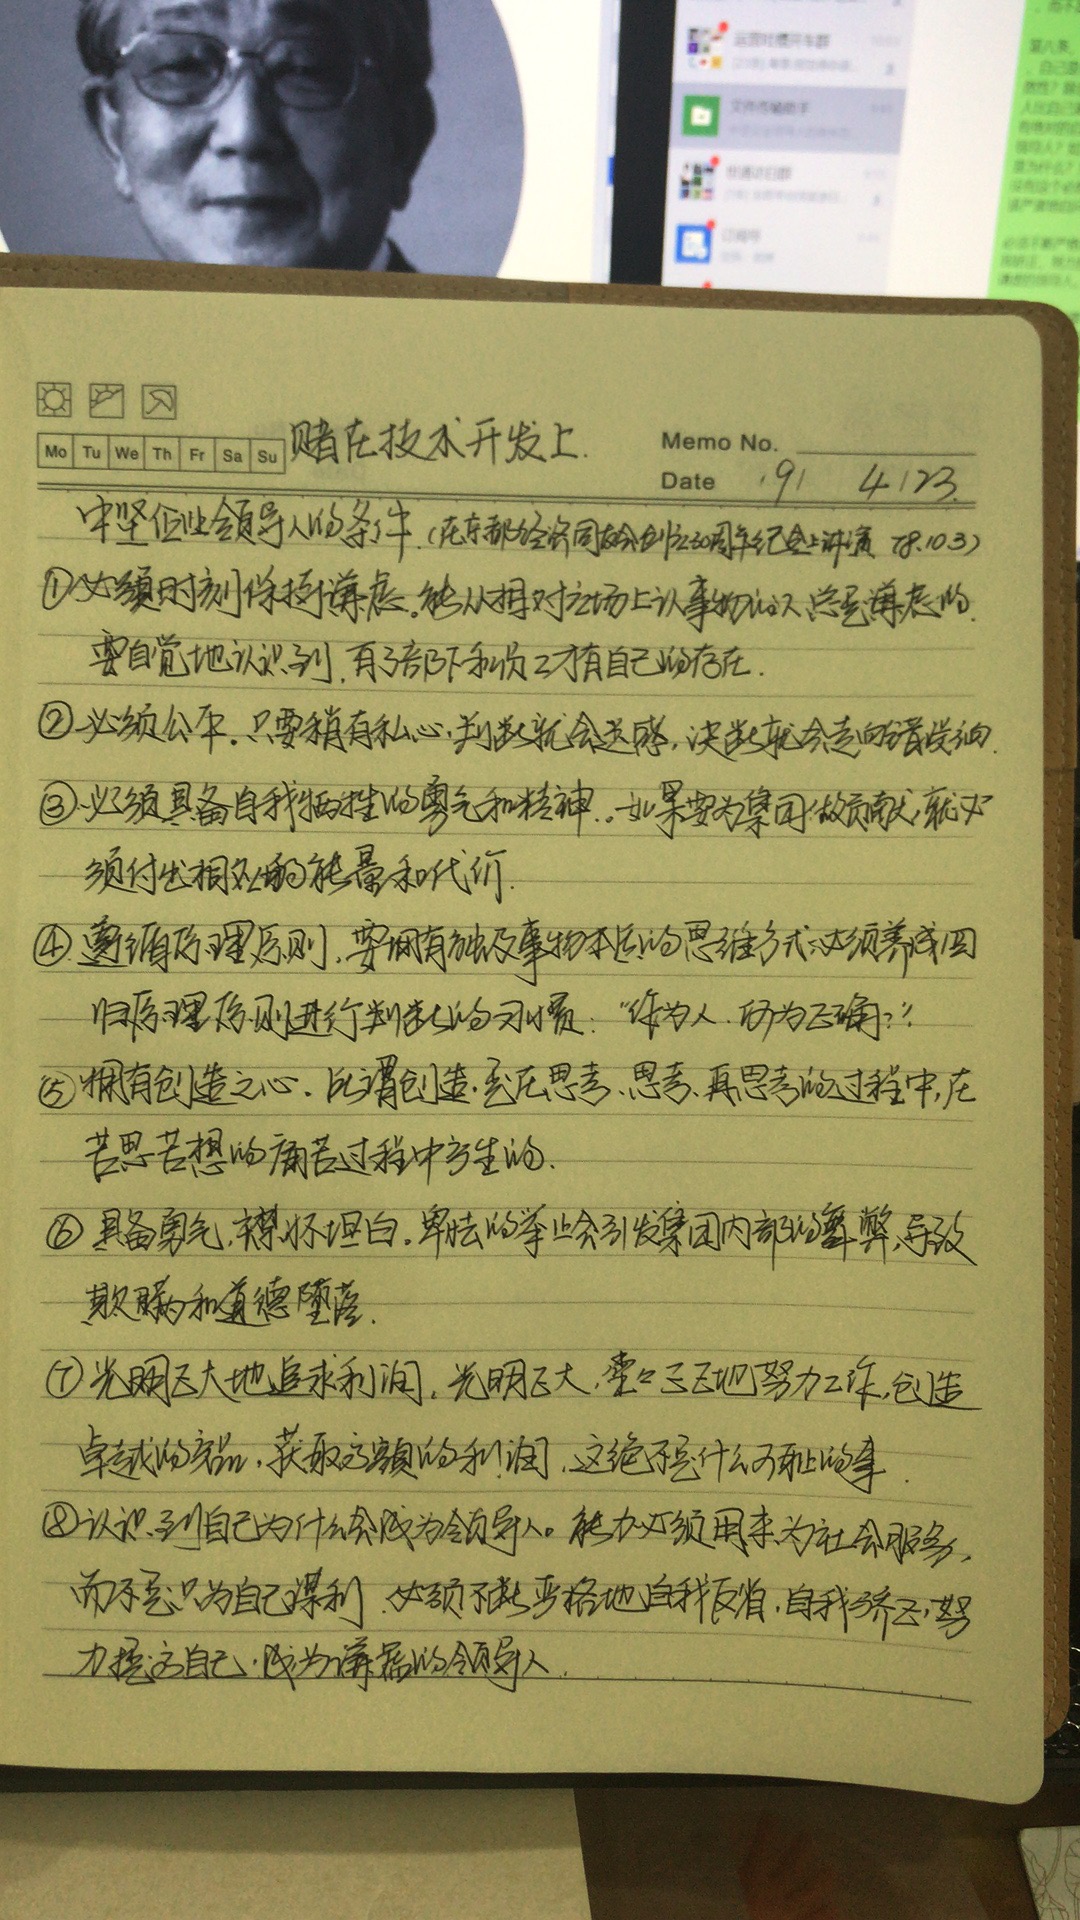 运营吐槽开车群
文件传输助手
订阅号
第八条，
Mo Tu We Th Fr Sa Su
赌在技术开发上.
Memo No.
Date '91 4/23.
中坚企业领导人的条件.(在京都经济同友会创立30周年纪念上讲演 78.10.3)
①必须时刻保持谦虚。能从相对立场上认事物的人总是谦虚的.
要自觉地认识到,有了部下和员工才有自己的存在.
②必须公平。只要稍有私心,判断就会迷惑,决断就会走向错误的
③必须具备自我牺牲的勇气和精神。如果要为集团做贡献,就必
须付出相对的能量和代价.
④遵循原理原则,要拥有触及事物本质的思维方式,必须养成回
归原理原则进行判断的习惯:“作为人,何为正确?”
⑤拥有创造之心.所谓创造,是在思考、思考、再思考的过程中,在
苦思苦想的痛苦过程中产生的.
⑥具备勇气,襟怀坦白。卑怯的举止会引发集团内部的舞弊,导致
欺瞒和道德堕落.
⑦光明正大地追求利润,光明正大,堂々正正地努力工作,创造
卓越的产品,获取高额的利润,这绝不是什么可耻的事.
⑧认识到自己为什么会成为领导人。能力必须用来为社会服务,
而不是只为自己谋利.必须不断严格地自我反省,自我矫正,努
力提高自己,成为谦虚的领导人.